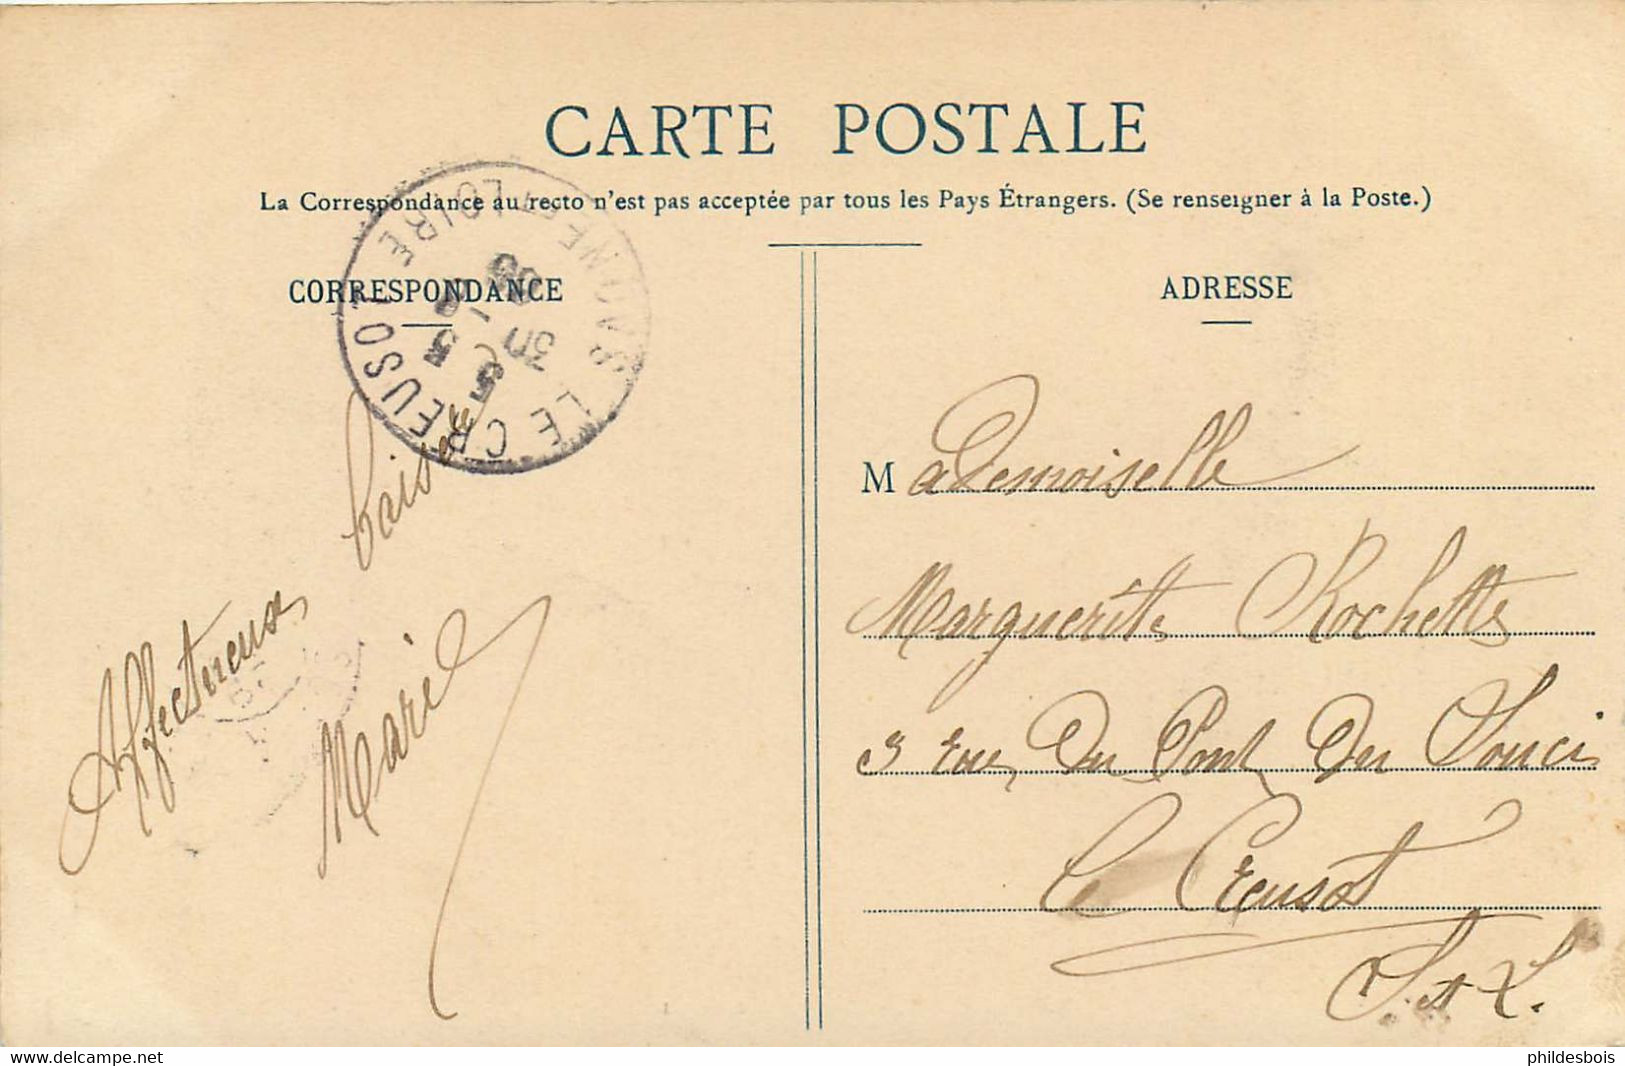 CARTE POSTALE
La Correspondance au recto n'est pas acceptée par tous les Pays Étrangers. (Se renseigner à la Poste.)
CORRESPONDANCE
LE CREUSOT
SAONE ET LOIRE
Affectueux baisers
Marie
ADRESSE
Mademoiselle
Marguerite Rochette
3 rue Du Pont Du Souci
Le Creusot
S. et L.
phildesbois